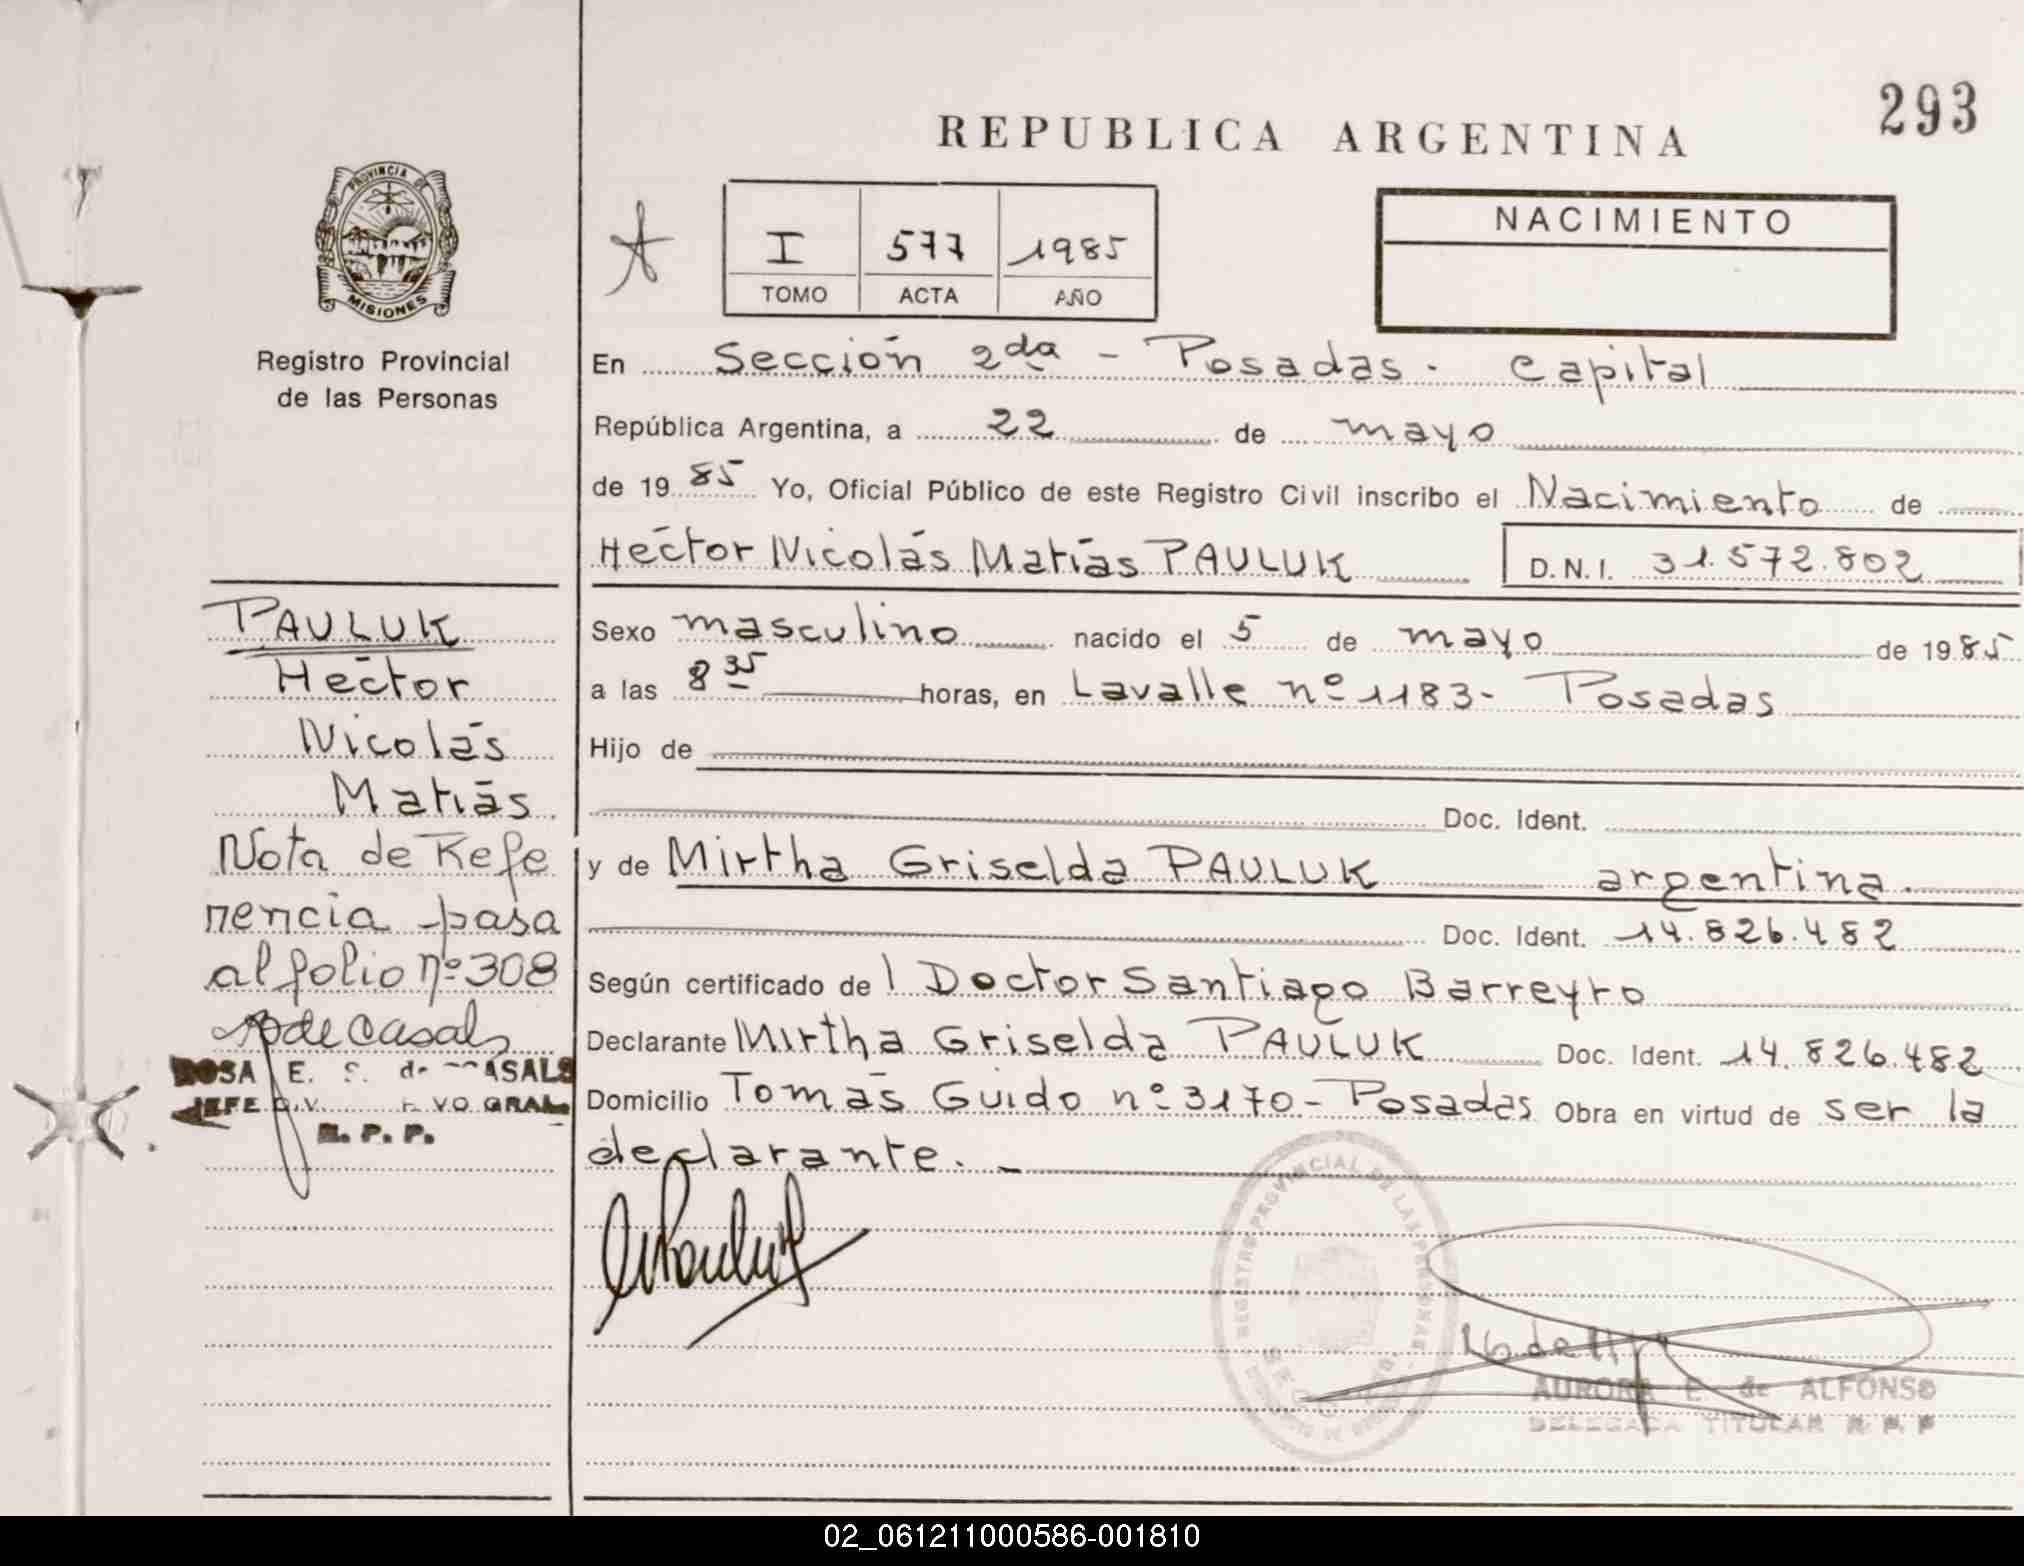 293
REPUBLICA ARGENTINA
PROVINCIA DE
MISIONES
Registro Provincial
de las Personas
I 577 1985
TOMO ACTA AÑO
NACIMIENTO
En Sección 2da - Posadas - Capital
República Argentina, a 22 de mayo
de 1985 Yo, Oficial Público de este Registro Civil inscribo el Nacimiento de
Héctor Nicolás Matías PAULUK D.N.I. 31.572.802
Sexo masculino nacido el 5 de mayo de 1985
a las 8 35 horas, en Lavalle nº 1183 - Posadas
Hijo de
Doc. Ident.
y de Mirtha Griselda PAULUK argentina.
Doc. Ident. 14.826.482
Según certificado de l Doctor Santiago Barreyro
Declarante Mirtha Griselda PAULUK Doc. Ident. 14.826.482
Domicilio Tomás Guido nº 3170 - Posadas Obra en virtud de ser la
declarante. -
PAULUK
Héctor
Nicolás
Matías
Nota de Refe
rencia pasa
al folio nº 308
de Casals
ROSA E. S. de CASALS
JEFE
R. P. P.
REGISTRO PROVINCIAL DE LAS PERSONAS
AURORA E. de ALFONSO
DELEGADA TITULAR R. P. P
02_061211000586-001810